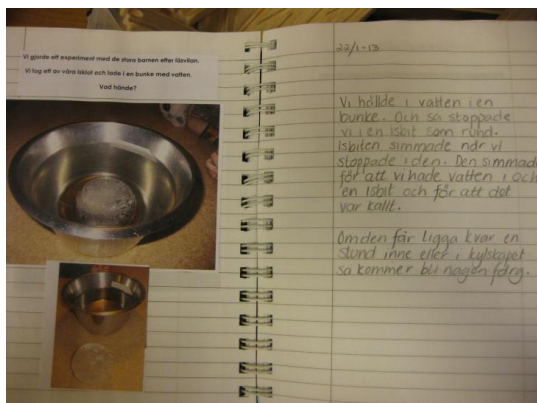 Vi gjorde ett experiment med de stora barnen efter läsvilan.
Vi tog ett av våra isklot och lade i en bunke med vatten.
Vad hände?
22/1-13
Vi hällde i vatten i en
bunke. Och sa stoppade
vi i en isbit som rund.
Isbiten simmade när vi
stoppade i den. Den simmade
för att vi hade vatten i och
en isbit och för att det
var kallt.
Om den får ligga kvar en
stund inne eller i kylskåpet
så kommer bli någon färg.